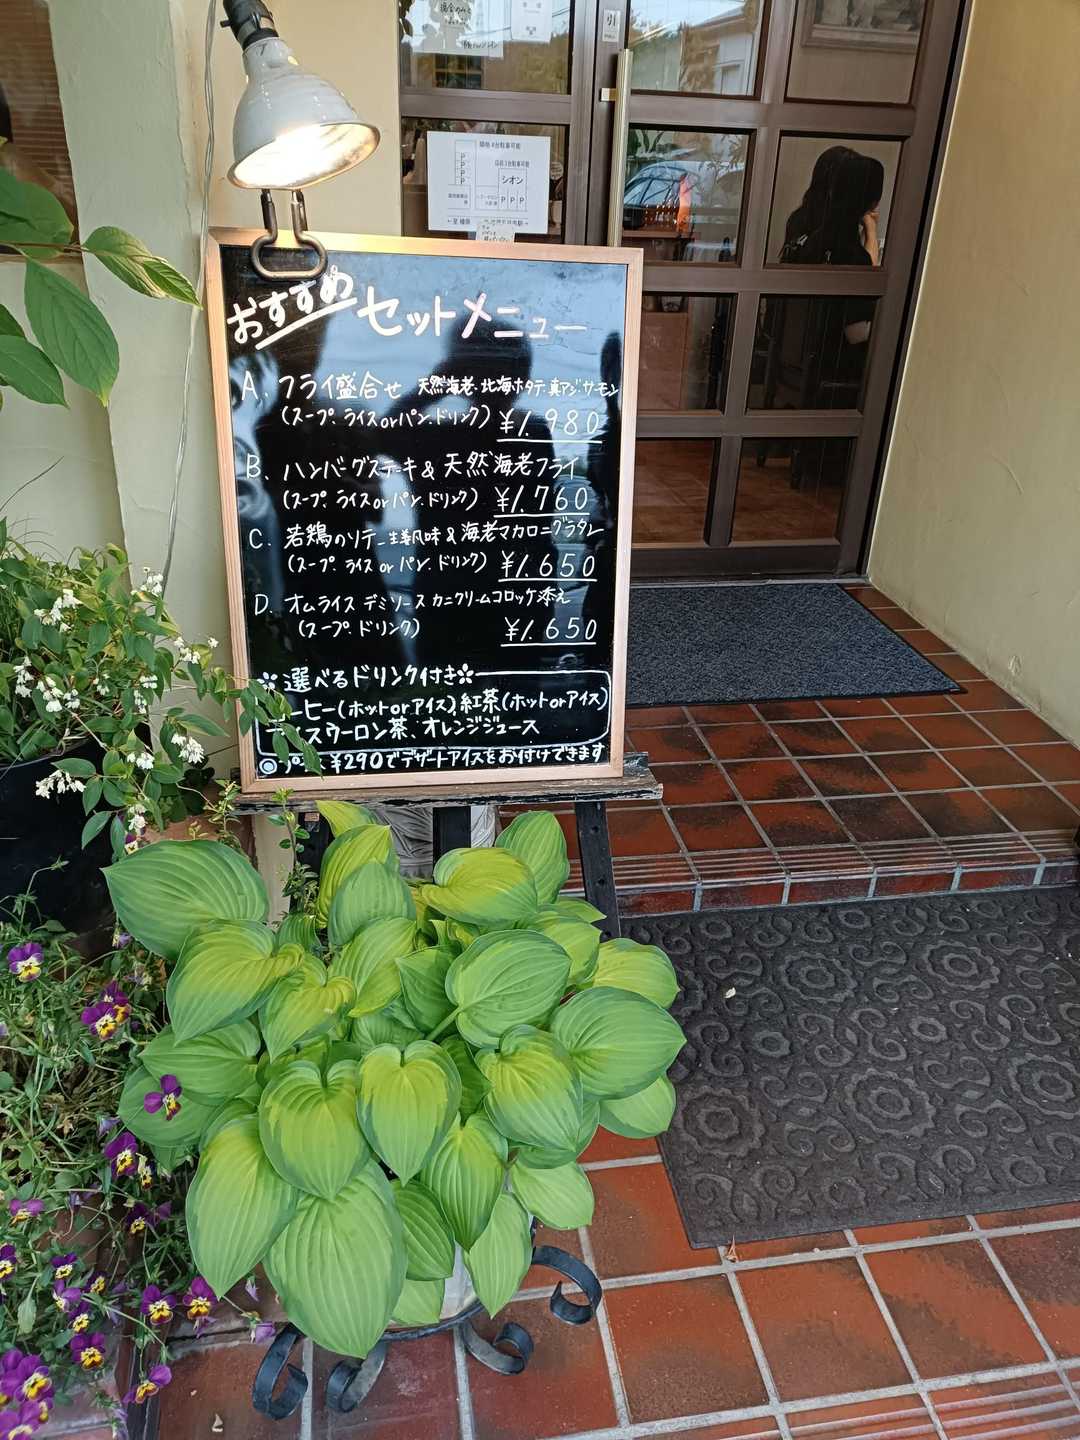 引
隣地4台駐車可能
P
P
P
P
店前3台駐車可能
シオン
P P P
おすすめ セットメニュー
A. フライ盛合せ 天然海老・北海ホタテ・真アジ・サーモン
(スープ、ライスorパン、ドリンク) ¥1.980
B. ハンバーグステーキ & 天然海老フライ
(スープ、ライスorパン、ドリンク) ¥1.760
C. 若鶏のソテー生姜風味 & 海老マカロニグラタン
(スープ、ライス or パン、ドリンク) ¥1.650
D. オムライス デミソース カニクリームコロッケ添え
(スープ、ドリンク) ¥1.650
選べるドリンク付き
コーヒー(ホットorアイス)、紅茶(ホットorアイス)
アイスウーロン茶、オレンジジュース
◎プラス¥290でデザートアイスをお付けできます